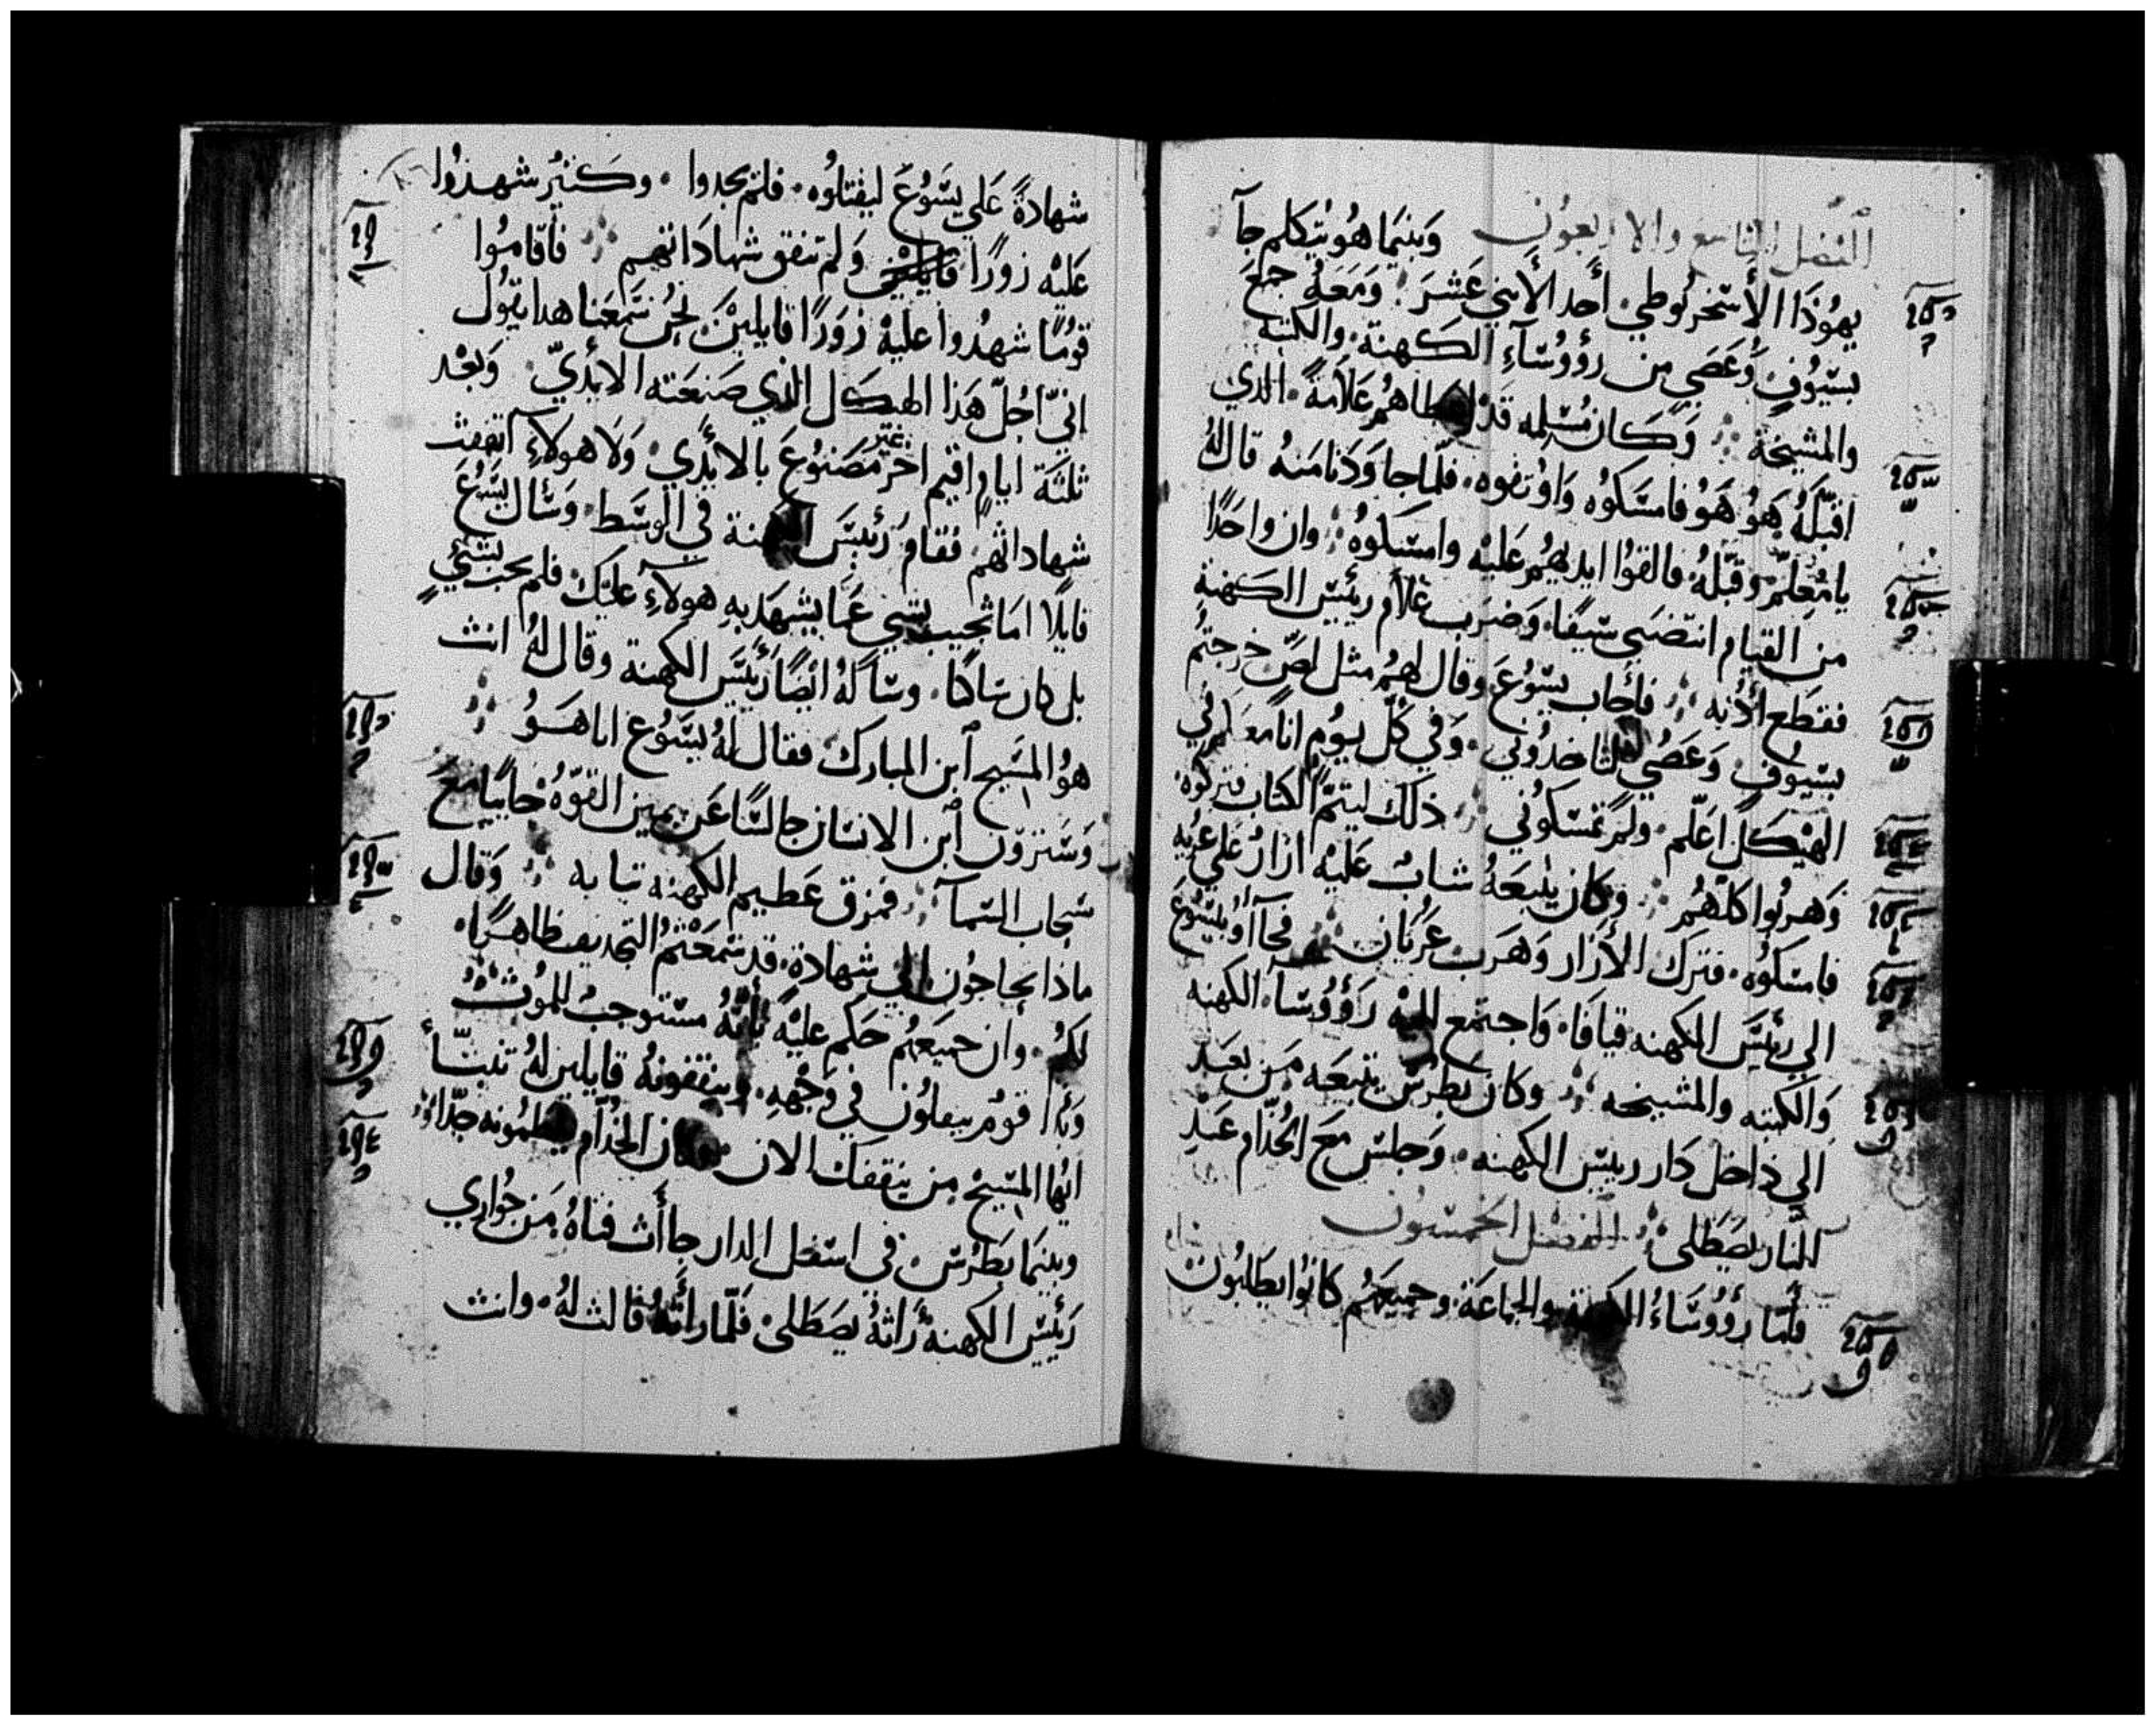 الفصل التاسع والاربعون وَبَينَما هُو يتكلم جآ
يهُوذَا الأسخريُوطي أحد الأثني عَشرَ وَمَعَهُ جمعَ
بسيُوف وَعَصي من رؤوُسَآءِ الكهنة والكتبه
والمشيخة وَكان مُسَلمه قد اعطاهُم عَلامَةً الذي
اقبّلهُ هُو هُو فامسَكوُه وَاوُثقوه فلما جا وَدَنا منهُ قال لهُ
يا مُعلّم وقبّلهُ فالقوُا ايديهُم عَليْه وامسَكوُه وان واحدًا
من القيام انتضىَ سَيفًا وَضرَب غلام رئيسَ الكهنة
فقطع أذُنه فأجاب يسُوعَ وقال لهُم مثل لصّ خرجتُم
بسيُوف وَعَصُي لتاخذُوني وَفي كل يوُم انا مَعَكم في
الهيْكل اعَلّم ولم تمسَكوُني ذلك ليتمّ الكتاب فتركوُه
وَهربُوا كلهُم وكان يتبَعَهُ شابٌ عَليْه ازارُ عَلي عُريه
فامسَكوُه فترك الأزار وَهَرب عُريان فجآأوُ بيسُوعَ
الي رئيسَ الكهنه قيافَا وَاجتمع اليْه رَؤوُسآء الكهنه
وَالكتبه والمشيخه وكان بطرسُ يتبعَه من بعَد
الي داخل دَار رييسَ الكهنه وَجلسَ معَ الخُدّام عَندِ
النار يصَطَلى الفصل الخمسُون
فلّما رؤوُسَاءُ الكهنة والجماعَة وجميعَهُم كانوُا يطلبُون
شهادةً عَلي يسُوعَ ليقتلوُه فلم يجدوا وكثيرُ شهدُوا
عَليْه زورًا وَلم تتفق شهادَاتهم فأقامُوا
قومًا شهدُوا عَليْه زوَرًا قايلينَ نحُن سَمعَنا هدا يقوُل
انيّ احُلّ هَذا الهيكل الذي صَنعَته الايديّ وَبعْد
ثلثة ايام اقيم اخر غير مَصَنوُعَ بالايدي وَلا هولاءِ اتفقت
شهاداتهم فقام رَئيسَ الكهنة في الوسَط وَسَأل يسَوُعَ
قايلًا امَا تجيب بشي عَما يشهَد بهِ هولاءِ عليْك فلم يجب بشيٍ
بل كان سَاكتا وسَاَلهُ ايضًا رَئيسَ الكهنة وقال لهُ انت
هوُ المسَيح ابن المبارك فقال لهُ يسَوُع انا هَوُ
وَسَترَوّن ابن الانسَان جالسًا عَن يمين القوّهُ جَاييًا معَ
سَحاب السَمآ فمزق عَظيم الكهنه تيابه وَقال
ماذا تحتاجُون الي شهادة قد سَمَعَتُم التجديف ظاهرًا
لكُم وان جميعَهُم حَكم عليْه بأنّهُ مسَتوجبُ للموُت
وَبدا قومُ يبصقوُن في وَجُههِ وينقفونهُ قايلين لهُ تنبّأ
ايُها المسَيحُ من ينقفك الان وكان الخُدّام يلطمُونه جدّا
وبينَما بَطرُسَ في اسَفل الدار جاأت فتاهُ من جُواري
رَئيسَ الكهنة رَاتهُ يصَطَلى فلمّا رأتهُ قالت لهُ وانت